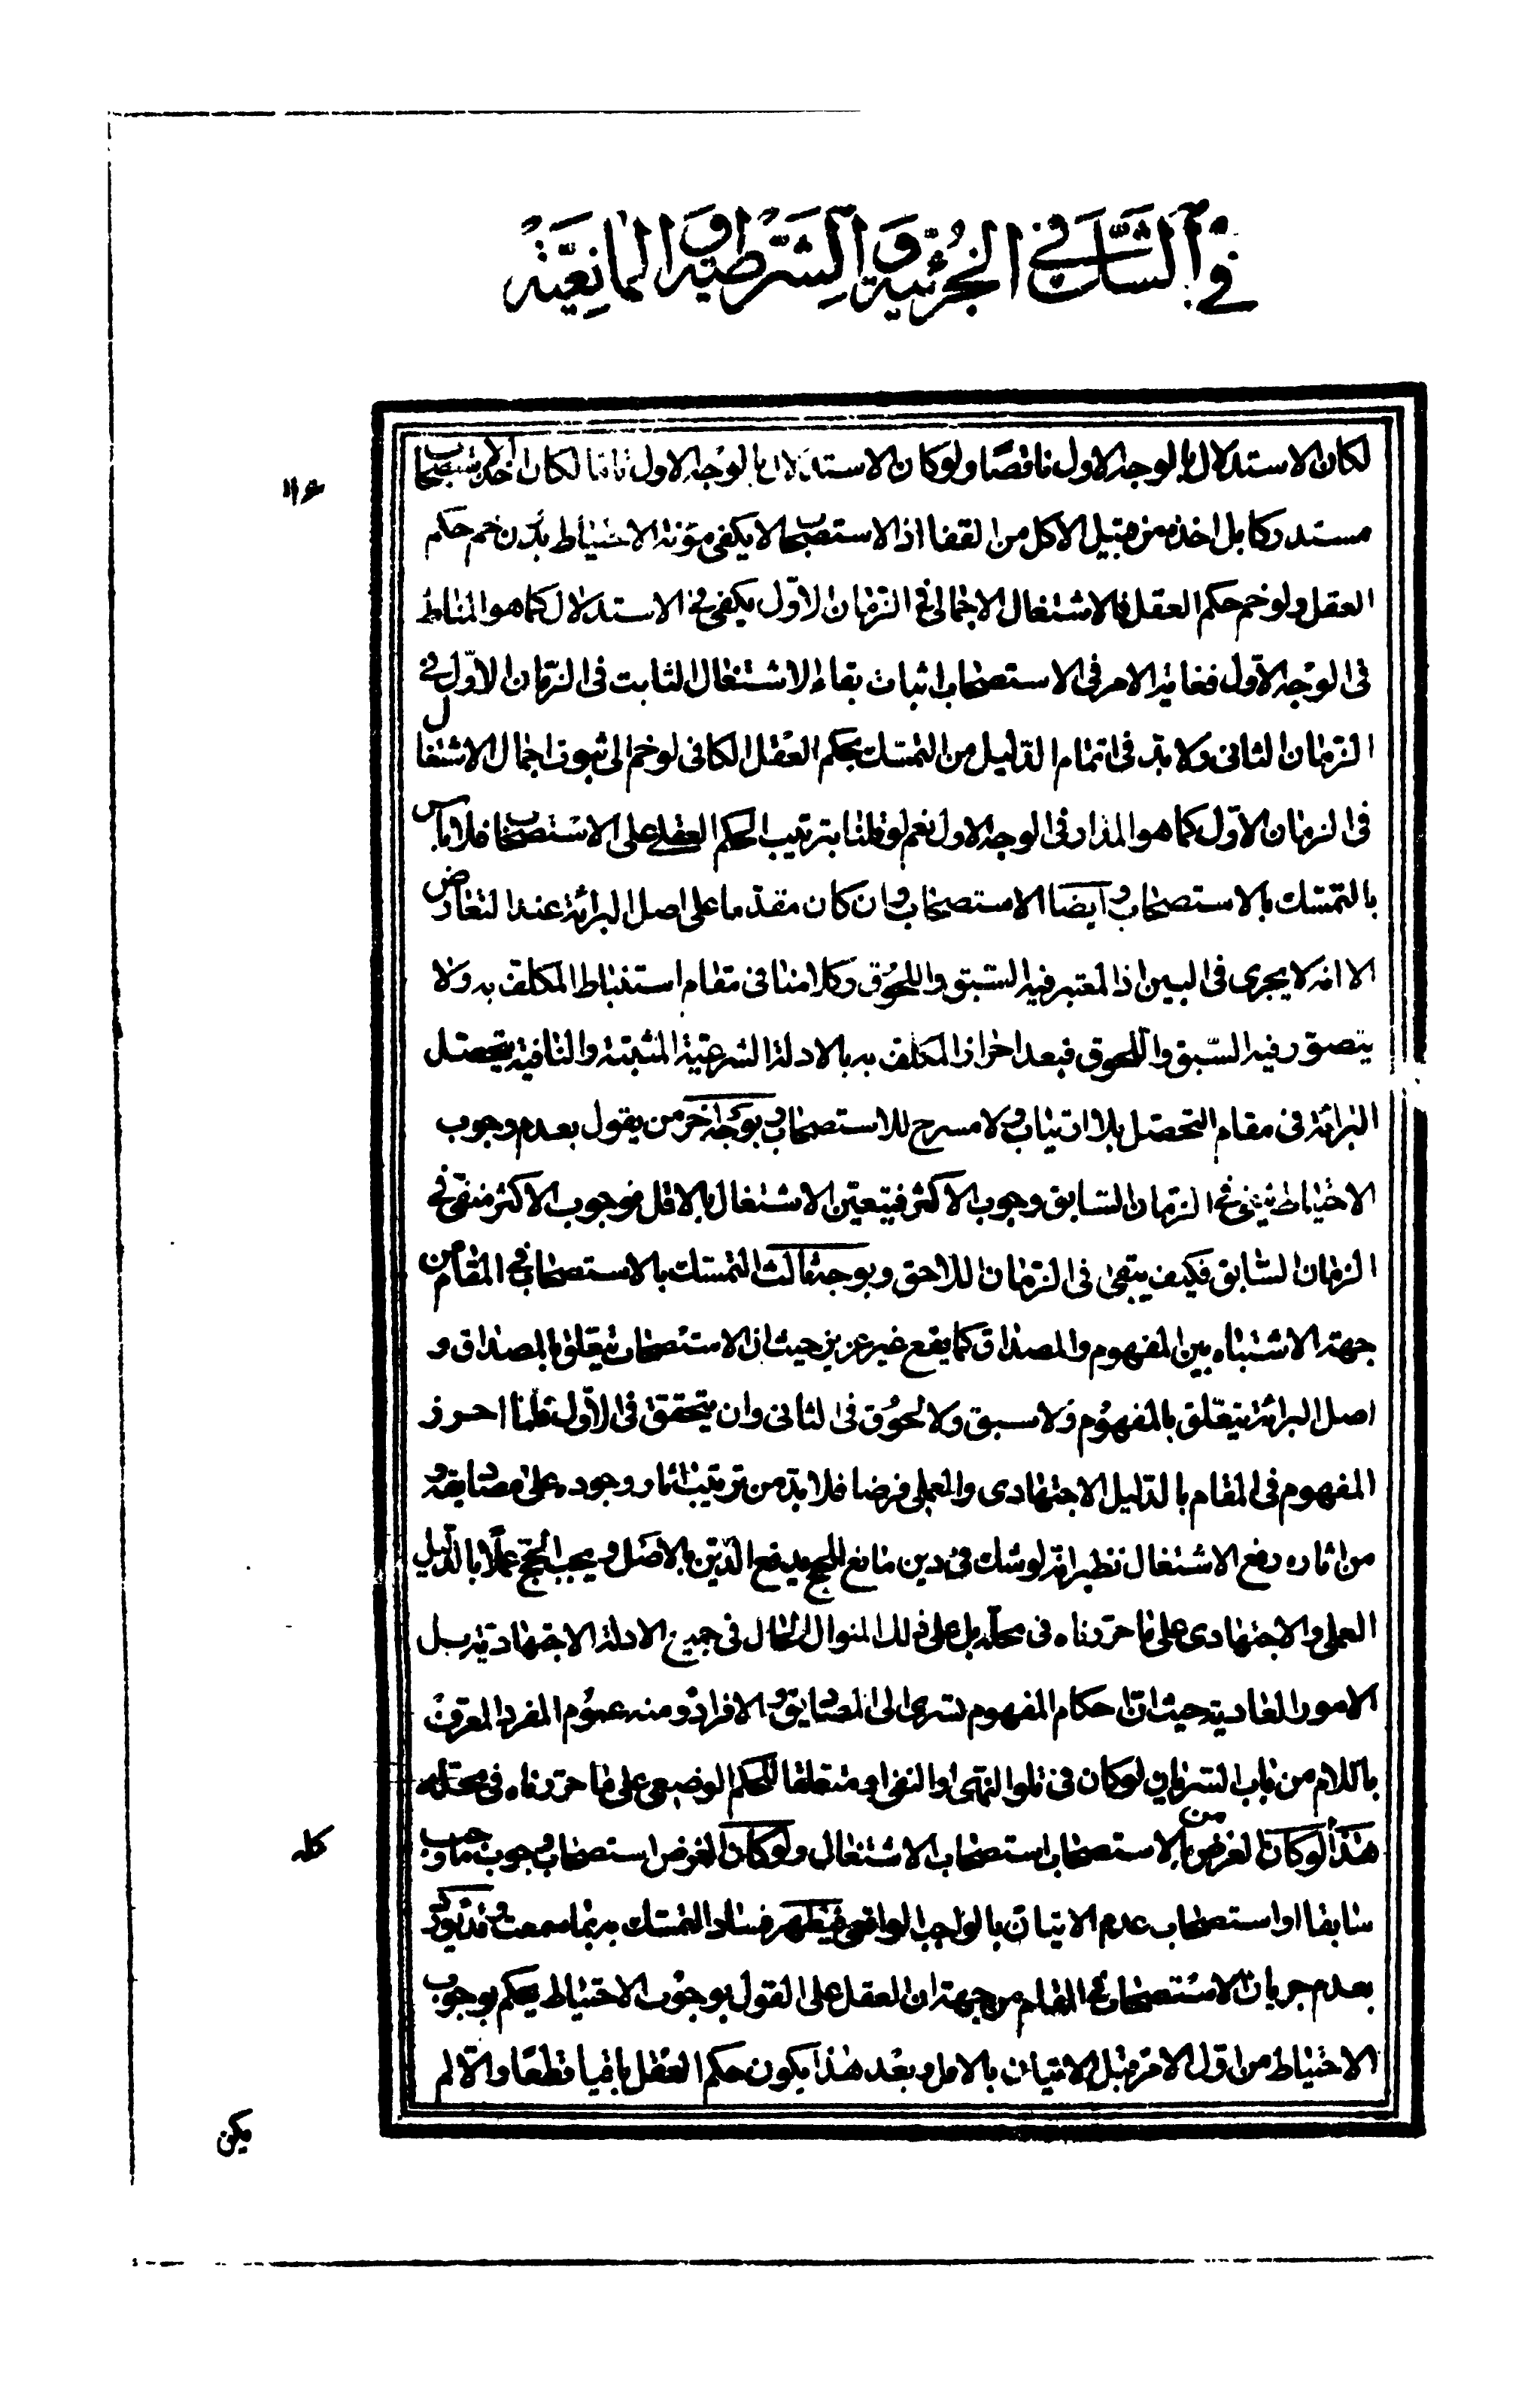 في الشك في الجزئية و الشرطية و المانعية
لكان الاستدلال بالوجه الاول ناقصا ولو كان الاستدلال بالوجه الاول تاما لكان اخذ الاستصحاب
مستدركا بل اخذه من قبيل الاكل من القفا اذ الاستصحاب لا يكفى مؤنة الاحتياط بدون ضم حكم
العقل ولو ضم حكم العقل فالاشتغال الاجمالى فى الزمان الاول يكفى فى الاستدلال كما هو المناط
فى الوجه الاول فغاية الامر فى الاستصحاب اثبات بقاء الاشتغال الثابت فى الزمان الاول فى
الزمان الثانى ولا بد فى اتمام الدليل من التمسك بحكم العقل الكافى لو ضم الى ثبوت اجمال الاشتغال
فى الزمان الاول كما هو المدار فى الوجه الاول نعم لو قلنا بترتيب الحكم العقلى على الاستصحاب فلا باس
بالتمسك بالاستصحاب و ايضا الاستصحاب وان كان مقدما على اصل البرائة عند التعارض
الا انه لا يجرى فى البين اذ المعتبر فيه السبق واللحوق وكلامنا فى مقام استنباط المكلف به ولا
يتصور فيه السبق واللحوق فبعد احراز المكلف به بالادلة الشرعية المثبتة والنافية يتحصل
البرائة فى مقام التحصل بلا ارتياب ولا مسرح للاستصحاب وبوجه اخر من يقول بعدم وجوب
الاحتياط ينفى فى الزمان السابق وجوب الاكثر فيتعين الاشتغال بالاقل فوجوب الاكثر منتفى فى
الزمان السابق فكيف يبقى فى الزمان اللاحق وبوجه ثالث التمسك بالاستصحاب فى المقام من
جهة الاشتباه بين المفهوم والمصداق كما يقع غير عزيز حيث ان الاستصحاب يتعلق بالمصداق و
اصل البرائة يتعلق بالمفهوم ولا سبق ولا لحوق فى الثانى وان يتحقق فى الاول فلما احرز
المفهوم فى المقام بالدليل الاجتهادى والعملى فرضا فلا بد من ترتيب اثار وجوده على مصاديقه و
من اثاره رفع الاشتغال نظير انه لو شك فى دين مانع للحج يدفع الدين بالاصل و يجب الحج عملا بالدليل
العملى والاجتهادى على ما حررناه فى محله بل على ذلك المنوال الحال فى جميع الادلة الاجتهادية بل
الامور العادية حيث ان احكام المفهوم تسرى الى المصاديق و الافراد و منه عموم المفرد المعرف
باللام من باب السريان لو كان فى تلو النهى او النفى او متعلقا للحكم الوضعى على ما حررناه فى محله
هذا لو كان الغرض من الاستصحاب استصحاب الاشتغال ولو كان الغرض استصحاب وجوب ما وجب
سابقا او استصحاب عدم الاتيان بالواجب الواقعى فيظهر فساد التمسك به بما سمعت و قد يورد
بعدم جريان الاستصحاب فى المقام من جهة ان العقل على القول بوجوب الاحتياط يحكم بوجوب
الاحتياط من اول الامر قبل الاتيان بالاقل و بعد هذا يكون حكم العقل باقيا قطعا والا لم
يكن